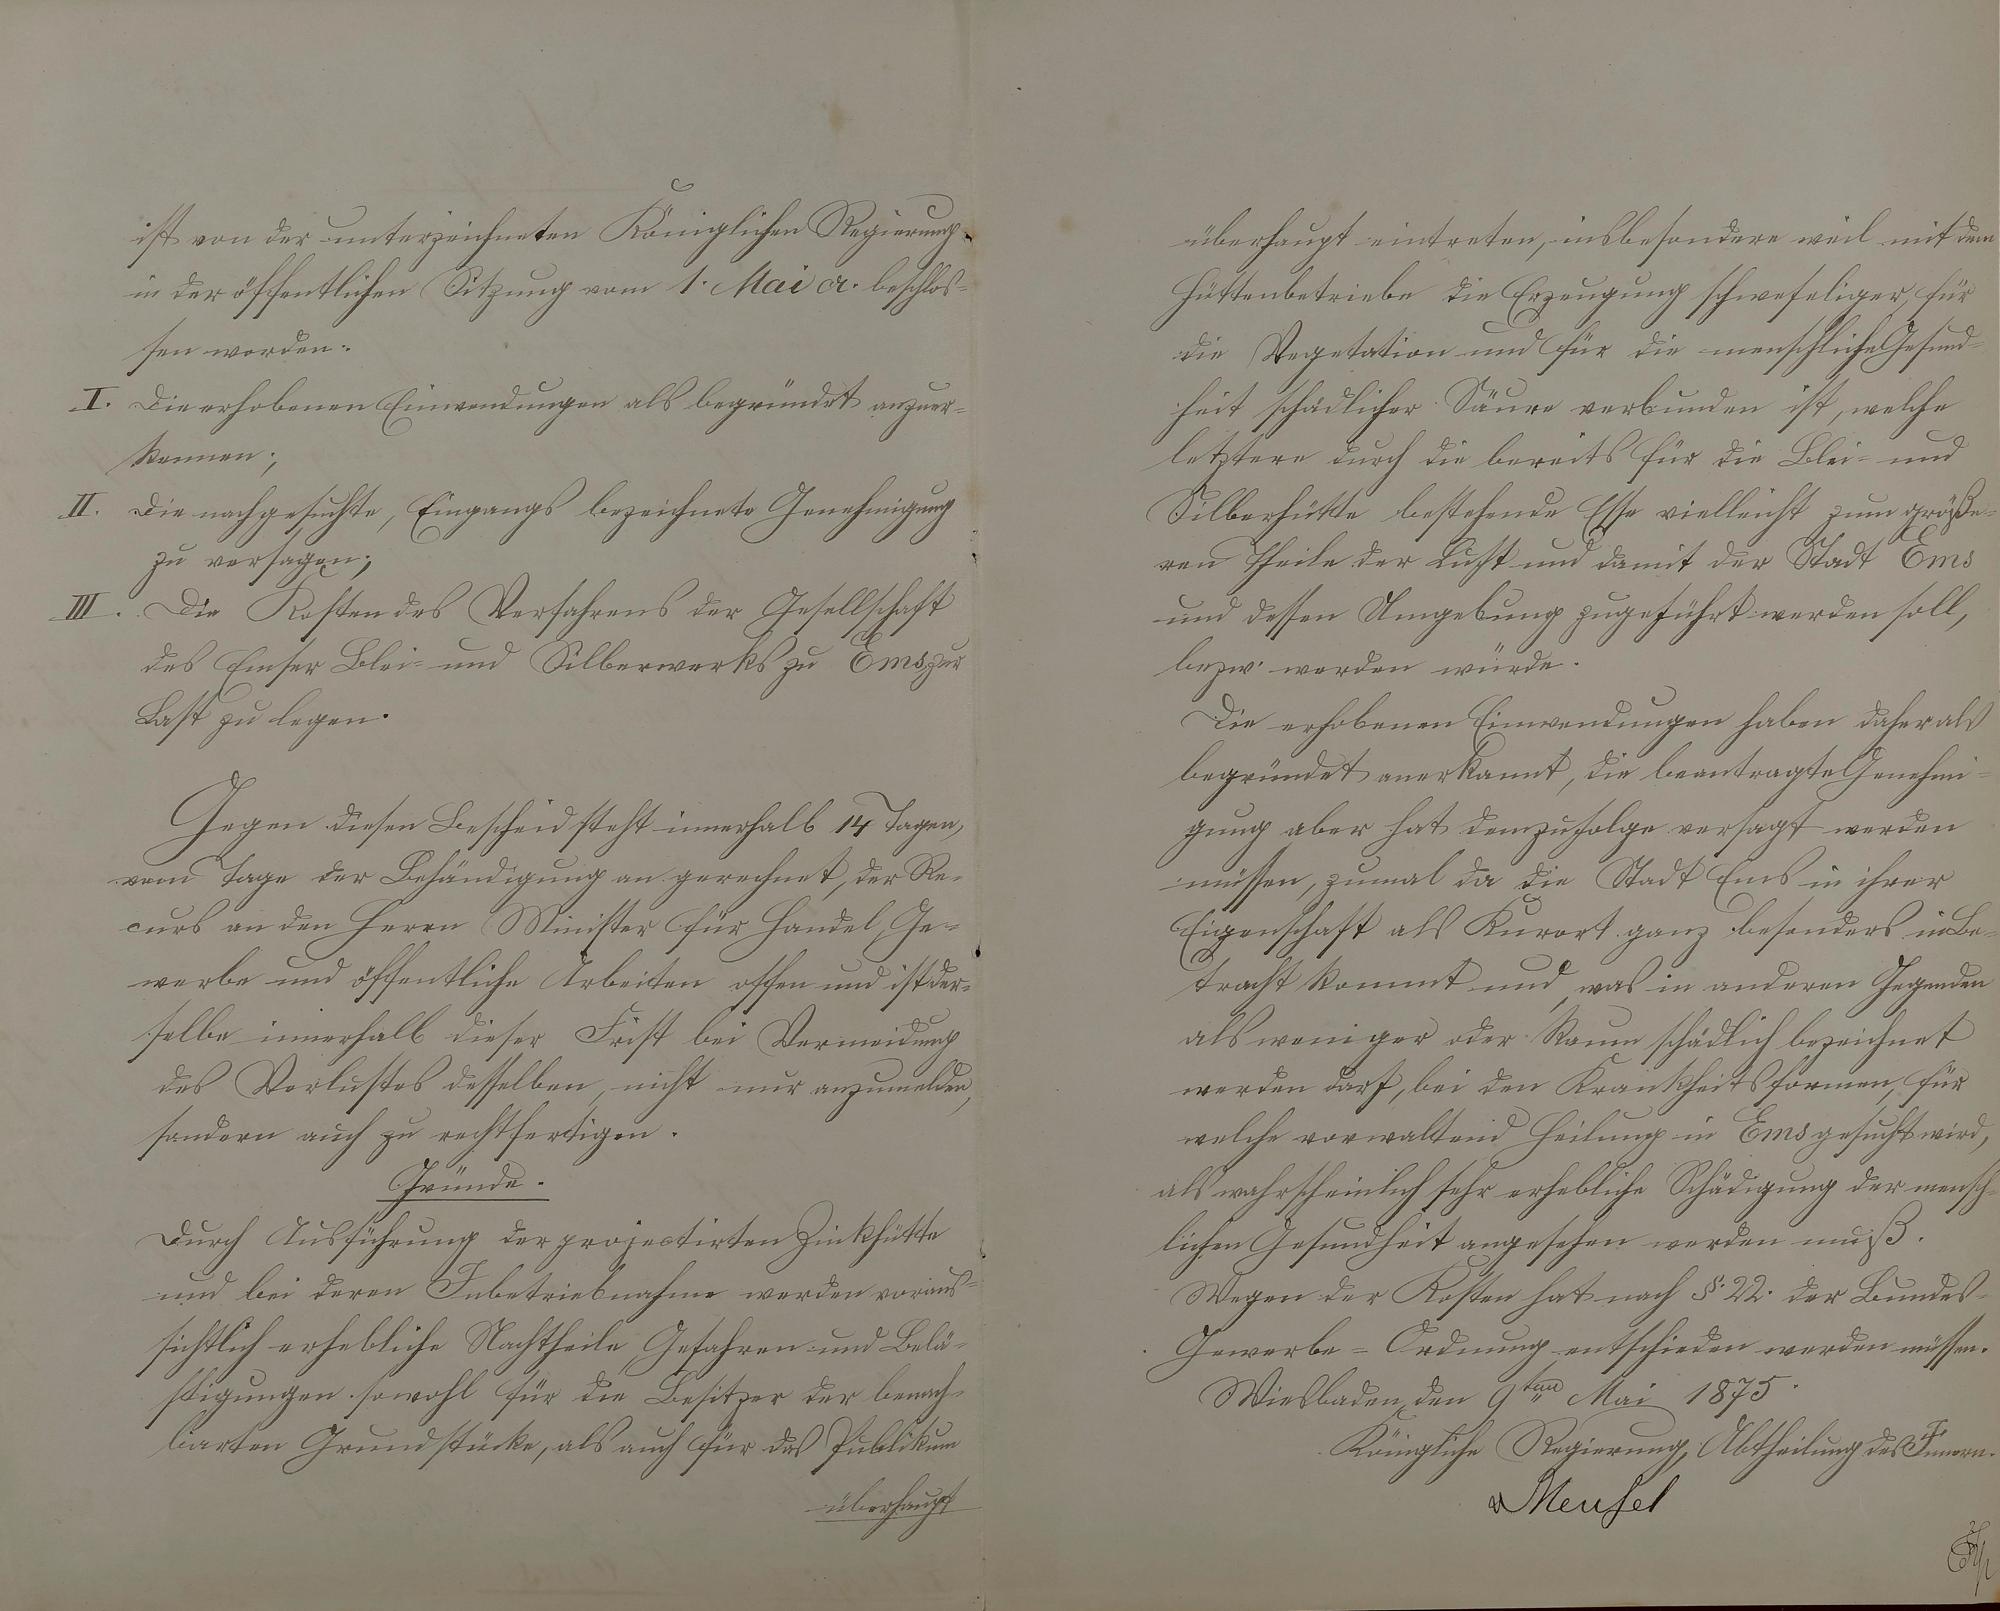 ist von der unterzeichneten Königlichen Regierung
in der öffentlichen Sitzung vom 1. Mai cr. beschlos-
sen worden:
I. Die erhobenen Einwendungen als begründet anzuer-
kennen;
II. Die nachgesuchte, Eingangs bezeichnete Genehmigung
zu versagen;
III. Die Kosten des Verfahrens der Gesellschaft
des Emser Blei- und Silberwerks zu Ems zur
Last zu legen.
Gegen diesen Bescheid steht innerhalb 14 Tagen,
vom Tage der Behändigung an gerechnet, der Re-
curs an den Herrn Minister für Handel, Ge-
werbe und öffentliche Arbeiten offen und ist der-
selbe innerhalb dieser Frist bei Vermeidung
des Verlustes desselben, nicht nur anzumelden,
sondern auch zu rechtfertigen.
Gründe.
Durch Ausführung der projectirten Zinkhütte
und bei deren Inbetriebnahme werden voraus-
sichtlich erhebliche Nachtheile, Gefahren und Belä-
stigungen sowohl für die Besitzer der benach-
barten Grundstücke, als auch für das Publikum
überhaupt
überhaupt eintreten, insbesondere weil mit dem
Hüttenbetriebe die Erzeugung schwefeliger, für
die Vegetation und für die menschliche Gesund-
heit schädlicher Säure verbunden ist, welche
letztere durch die bereits für die Blei- und
Silberhütte bestehende Esse vielleicht zum größe-
ren Theile der Luft und damit der Stadt Ems
und dessen Umgebung zugeführt werden soll,
bezw. werden würde.
Die erhobenen Einwendungen haben daher als
begründet anerkannt, die beantragte Genehmi-
gung aber hat demzufolge versagt werden
müssen, zumal da die Stadt Ems in ihrer
Eigenschaft als Kurort ganz besonders in Be-
tracht kommt und, was in anderen Gegenden
als weniger oder kaum schädlich bezeichnet
werden darf, bei den Krankheitsformen, für
welche vorwaltend Heilung in Ems gesucht wird,
als wahrscheinlich sehr erhebliche Schädigung der mensch-
lichen Gesundheit angesehen werden muß.
Wegen der Kosten hat nach §. 22. der Bundes-
Gewerbe-Ordnung entschieden werden müssen.
Wiesbaden, den 9ten Mai 1875.
Königliche Regierung, Abtheilung des Innern.
Meusel